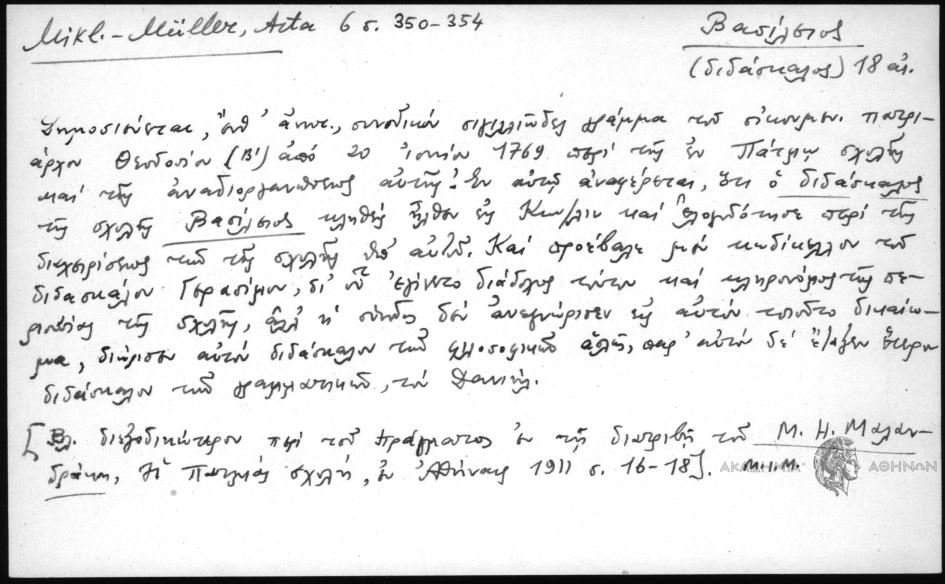 Mikl.-Müller, Acta 6 σ. 350-354
Βασίλειος
(διδάσκαλος) 18 αἰ.
Δημοσιεύεται, ὑπ' ἀριθ., συνοδικόν σιγιλλιῶδες γράμμα τοῦ οἰκουμεν. πατρι-
άρχου Θεοδοσίου (Β') ἀπό 20 ἰουνίου 1769 περί τῆς ἐν Πάτμῳ σχολῆς
καί τῆς ἀναδιοργανώσεως αὐτῆς. Ἐν αὐτῷ ἀναφέρεται, ὅτι ὁ διδάσκαλος
τῆς σχολῆς Βασίλειος κληθείς ἦλθεν εἰς Κων/λιν καί ἐλογοδότησε περί τῆς
διαχειρίσεως τῶν τῆς σχολῆς ὑπ' αὐτοῦ. Καί προέβαλε μέν κωδίκελλον τοῦ
διδασκάλου Γερασίμου, δι' οὗ ἐγίνετο διάδοχος τούτου καί κληρονόμος τῆς πε-
ριουσίας τῆς σχολῆς, ἀλλ' ἡ σύνοδος δέν ἀνεγνώρισεν εἰς αὐτόν τοιοῦτο δικαίω-
μα, διώρισεν αὐτόν διδάσκαλον τῶν φιλοσοφικῶν ἁπλῶς, παρ' αὐτόν δέ ἔταξεν ἕτερον
διδάσκαλον τῶν γραμματικῶν, τόν Δανιήλ.
[Βλ. διεξοδικώτερον περί τοῦ πράγματος ἐν τῇ διατριβῇ τοῦ Μ. Η. Μαλαν-
δράκη, Ἡ Πατμιάς σχολή, ἐν Ἀθήναις 1911 σ. 16-18]. Μ.Ι.Μ.
ΑΚΑΔΗΜΙΑ ΑΘΗΝΩΝ